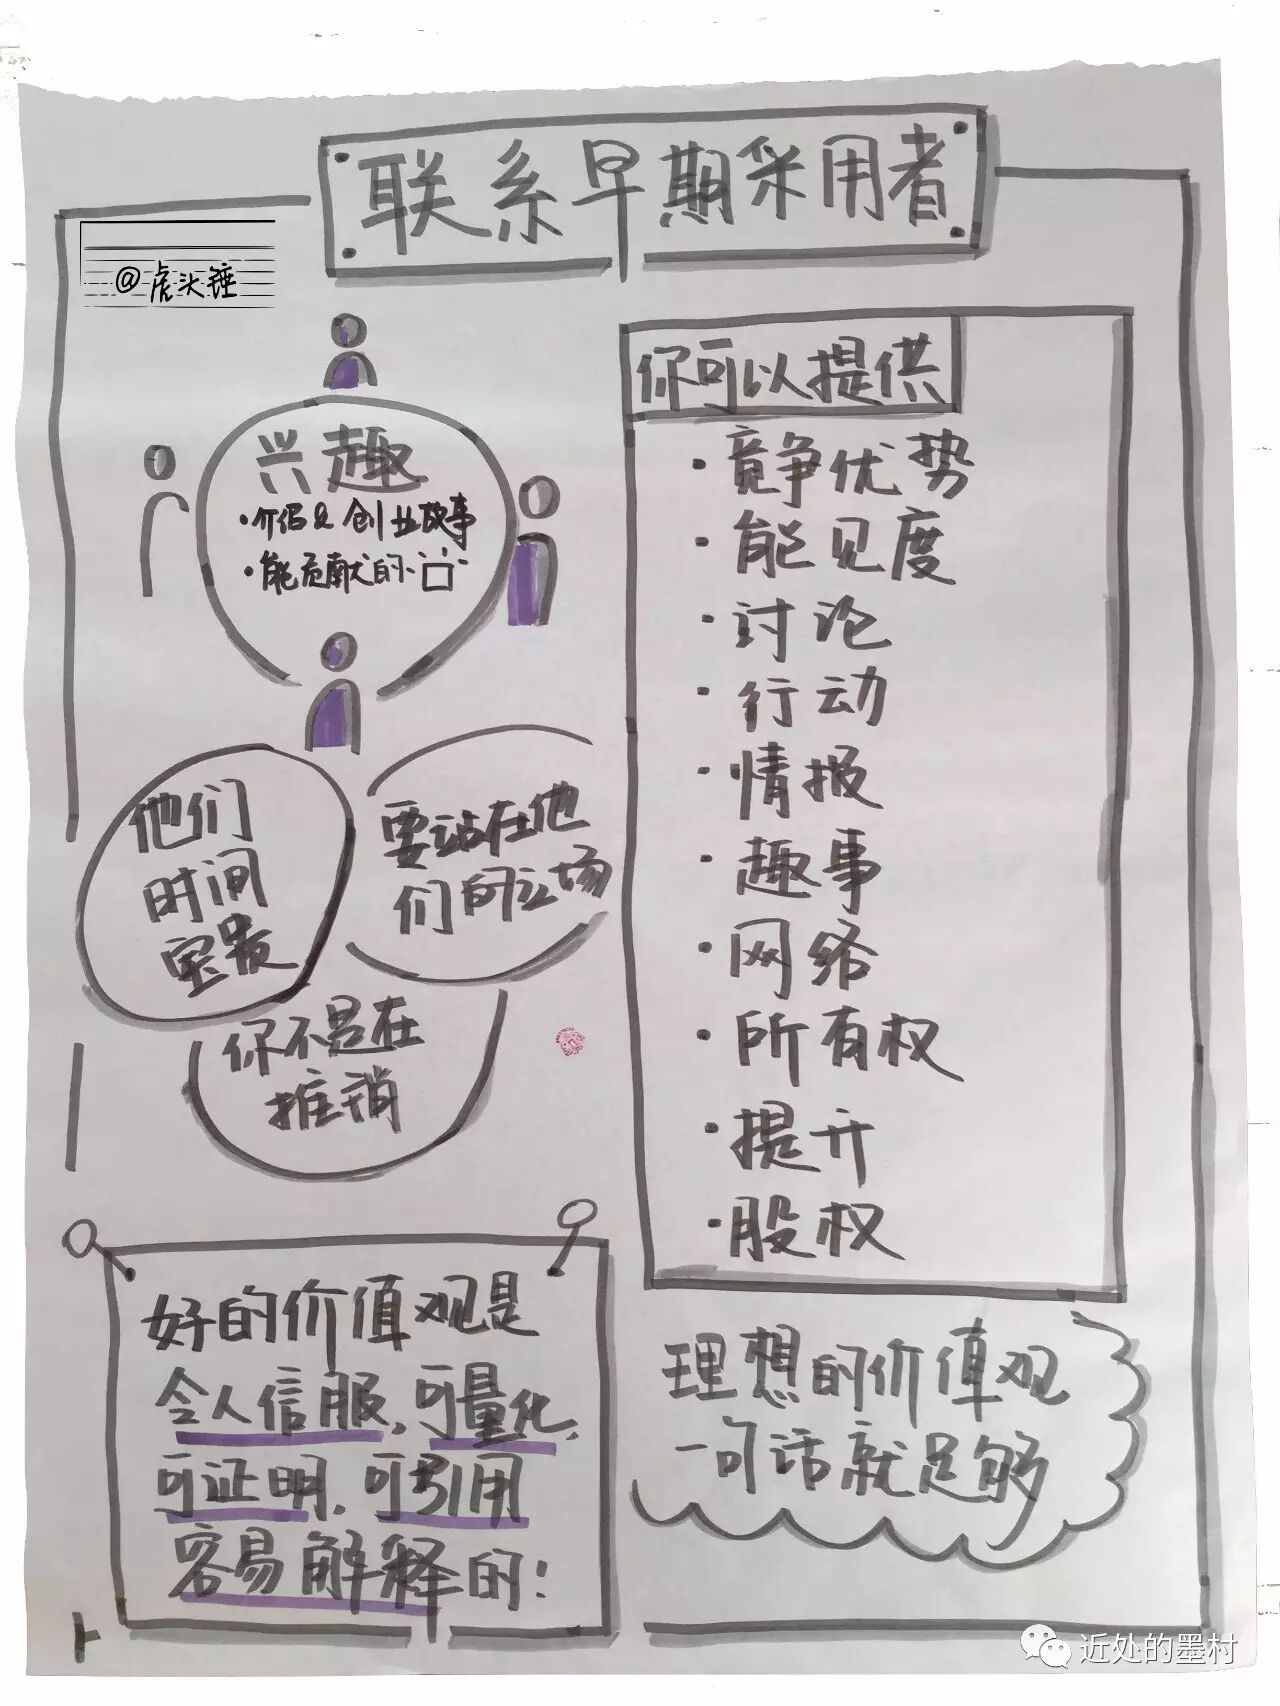 联系早期采用者
@虎头锤
兴趣
·介绍&创业故事
·能贡献的
他们
时间
宝贵
要站在他
们的立场
你不是在
推销
你可以提供
·竞争优势
·能见度
·讨论
·行动
·情报
·趣事
·网络
·所有权
·提升
·股权
好的价值观是
令人信服,可量化,
可证明,可引用
容易解释的:
理想的价值观
一句话就足够
近处的墨村